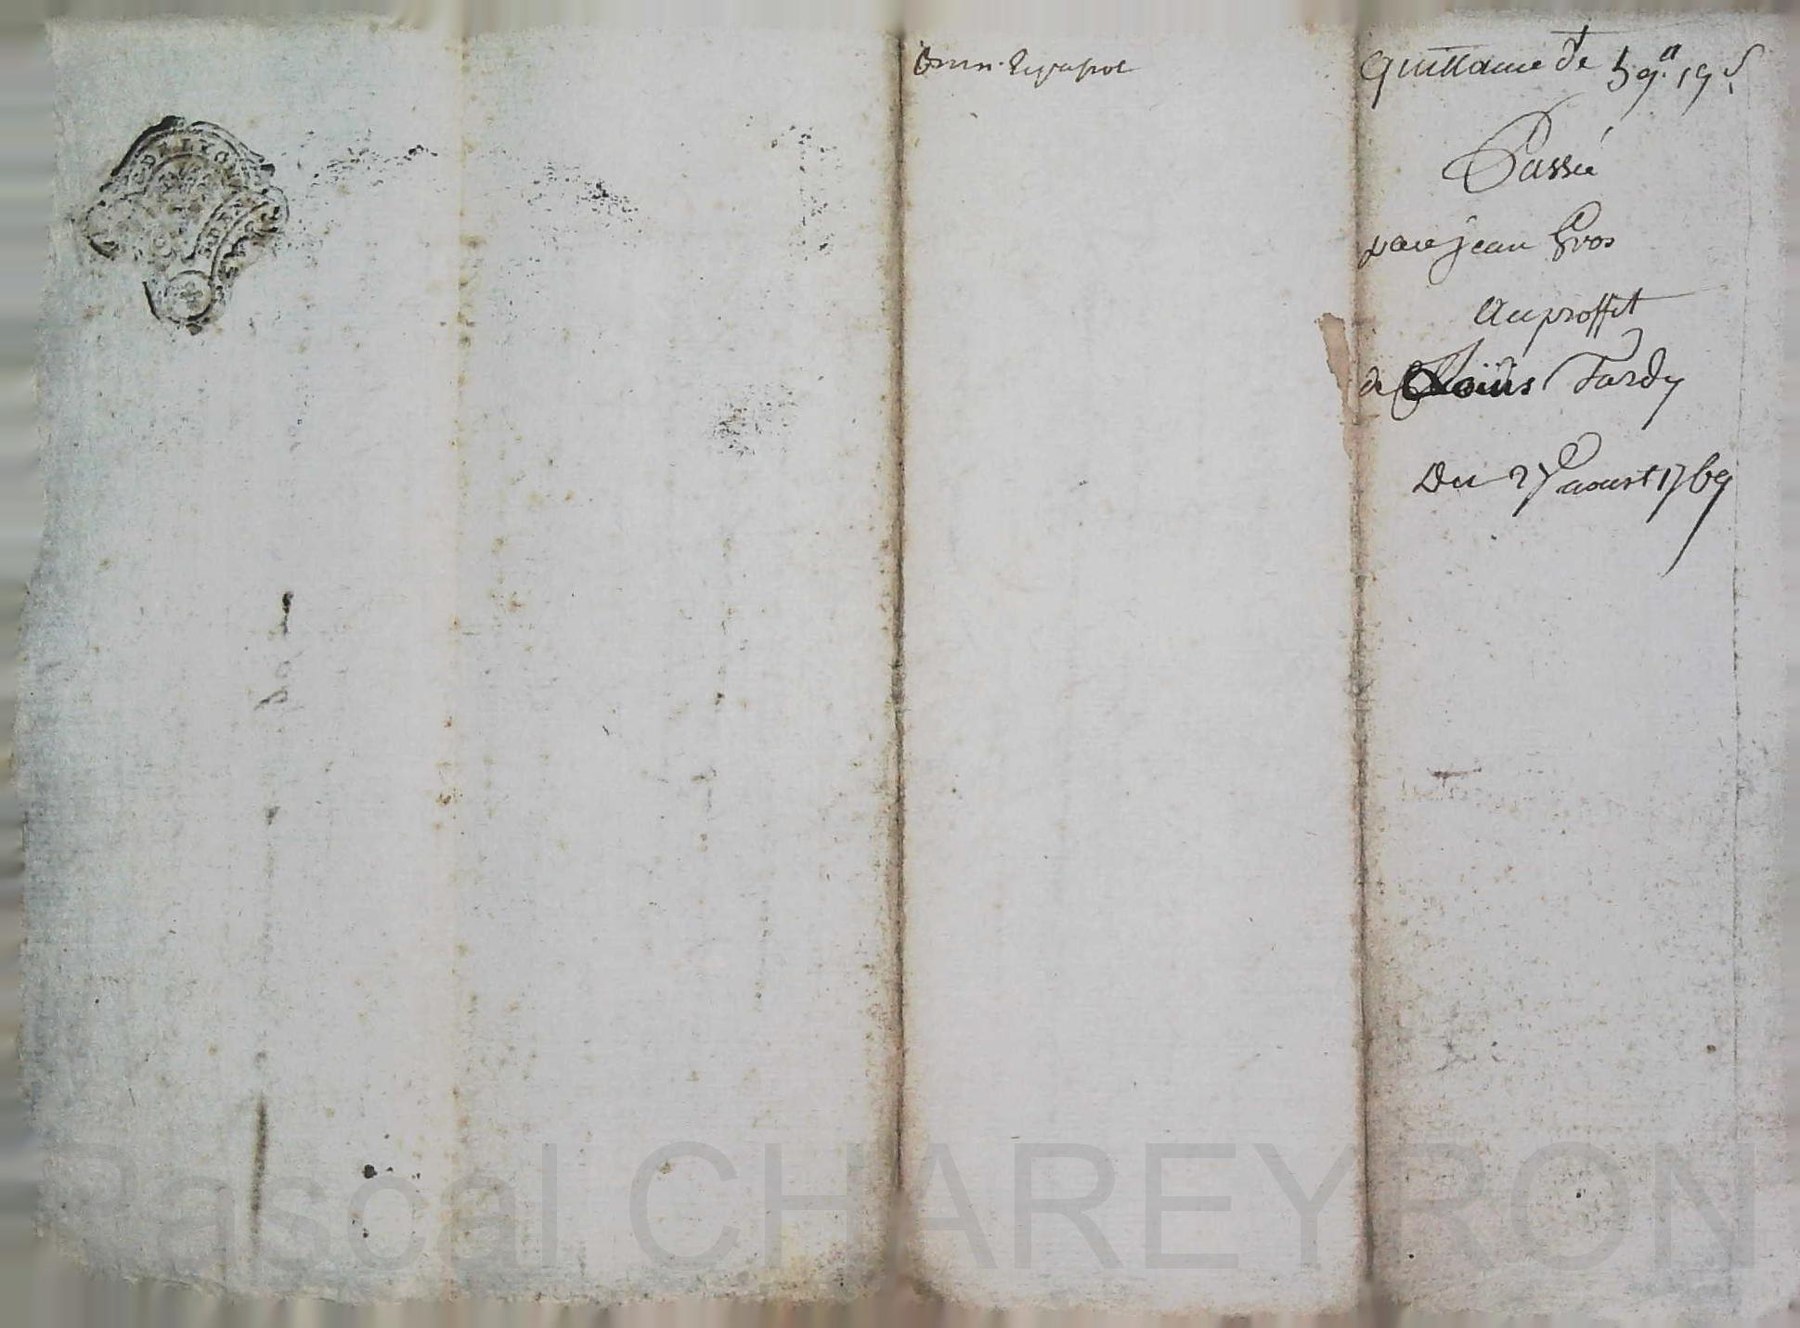 DE LYON
quittance de 59.ᶧᶧ 19 s.
Passée
par jean Gros
Au proffit
de Loüis Tardy
Du 27 aoust 1769
Pascal CHAREYRON